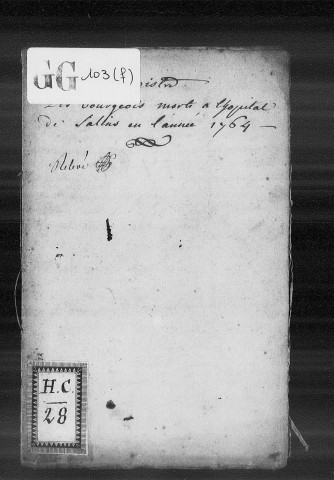 GG 103 (f)
Des bourgeois morts a l'hopital
de Sallins en l'année 1764 —
Relevé
H.C.
28